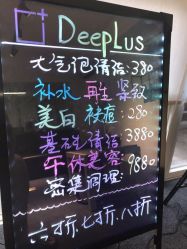 DeepLus
大气泡清洁:380
补水 再生 紧致
美白 祛痘:280
基础清洁 3880
午休美容:9880
密集调理:
六折.七折.八折